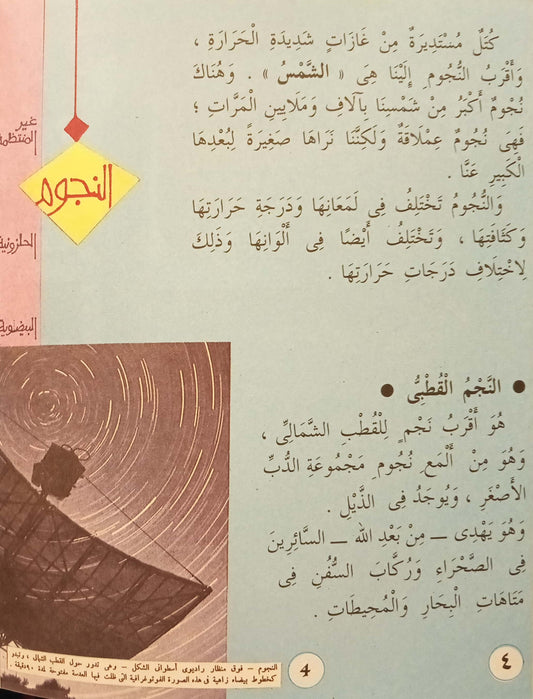 كُتَلٌ مُسْتَدِيرَةٌ مِنْ غَازَاتٍ شَدِيدَةِ الْحَرَارَةِ ،
وَأَقْرَبُ النُّجُومِ إِلَيْنَا هِىَ « الشَّمْسُ » . وَهُنَاكَ
نُجُومٌ أَكْبَرُ مِنْ شَمْسِنَا بِآلَافِ وَمَلَايِينِ الْمَرَّاتِ ؛
فَهِىَ نُجُومٌ عِمْلَاقَةٌ وَلَكِنَّنَا نَرَاهَا صَغِيرَةً لِبُعْدِهَا
الْكَبِيرِ عَنَّا .
وَالنُّجُومُ تَخْتَلِفُ فِى لَمَعَانِهَا وَدَرَجَةِ حَرَارَتِهَا
وَكَثَافَتِهَا ، وَتَخْتَلِفُ أَيْضًا فِى أَلْوَانِهَا وَذَلِكَ
لِاخْتِلَافِ دَرَجَاتِ حَرَارَتِهَا .
غير
المنتظمة
النجوم
الحلزونية
البيضوية
● النَّجْمُ الْقُطْبِىُّ ●
هُوَ أَقْرَبُ نَجْمٍ لِلْقُطْبِ الشَّمَالِىِّ ،
وَهُوَ مِنْ أَلْمَعِ نُجُومِ مَجْمُوعَةِ الدُّبِّ
الأَصْغَرِ ، وَيُوجَدُ فِى الذَّيْلِ .
وَهُوَ يَهْدِى — مِنْ بَعْدِ اللهِ — السَّائِرِينَ
فِى الصَّحْرَاءِ وَرُكَّابَ السُّفُنِ فِى
مَتَاهَاتِ الْبِحَارِ وَالْمُحِيطَاتِ .
النجوم — فوق منظار راديوى أسطوانى الشكل — وهى تدور حول القطب الشمالى ، وتبدو
كخطوط بيضاء زاهية فى هذه الصورة الفوتوغرافية التى ظلت فيها العدسة مفتوحة لمدة ٩٠ دقيقة .
4
٤